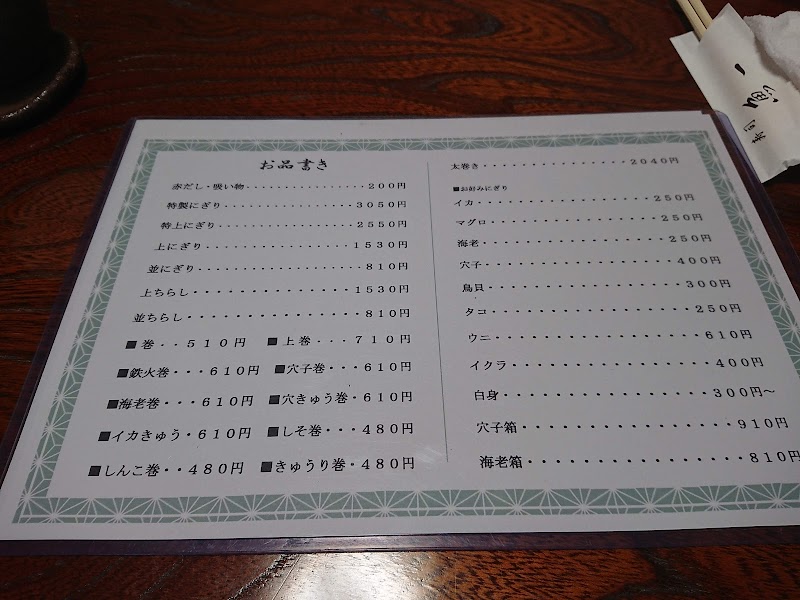 お品書き
赤だし・吸い物・・・・・・・・・・・・・・・・200円
特製にぎり・・・・・・・・・・・・・・・・3050円
特上にぎり・・・・・・・・・・・・・・・・2550円
上にぎり・・・・・・・・・・・・・・・・1530円
並にぎり・・・・・・・・・・・・・・・・810円
上ちらし・・・・・・・・・・・・・・・1530円
並ちらし・・・・・・・・・・・・・・・・810円
■巻・・510円 ■上巻・・・710円
■鉄火巻・・・610円 ■穴子巻・・・610円
■海老巻・・・610円 ■穴きゅう巻・610円
■イカきゅう・610円 ■しそ巻・・・480円
■しんこ巻・・480円 ■きゅうり巻・480円
太巻き・・・・・・・・・・・・・・・2040円
■お好みにぎり
イカ・・・・・・・・・・・・・・・・・250円
マグロ・・・・・・・・・・・・・・・・250円
海老・・・・・・・・・・・・・・・・・250円
穴子・・・・・・・・・・・・・・・・・400円
鳥貝・・・・・・・・・・・・・・・・・300円
タコ・・・・・・・・・・・・・・・・・250円
ウニ・・・・・・・・・・・・・・・・・610円
イクラ・・・・・・・・・・・・・・・・400円
白身・・・・・・・・・・・・・・・・300円～
穴子箱・・・・・・・・・・・・・・・・910円
海老箱・・・・・・・・・・・・・・・・810円